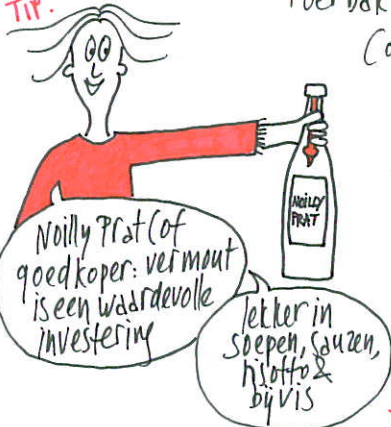 TIP.
NOILLY
PRAT
Noilly Prat (of
goedkoper: vermout
is een waardevolle
investering
lekker in
soepen, sauzen,
risotto &
bij vis